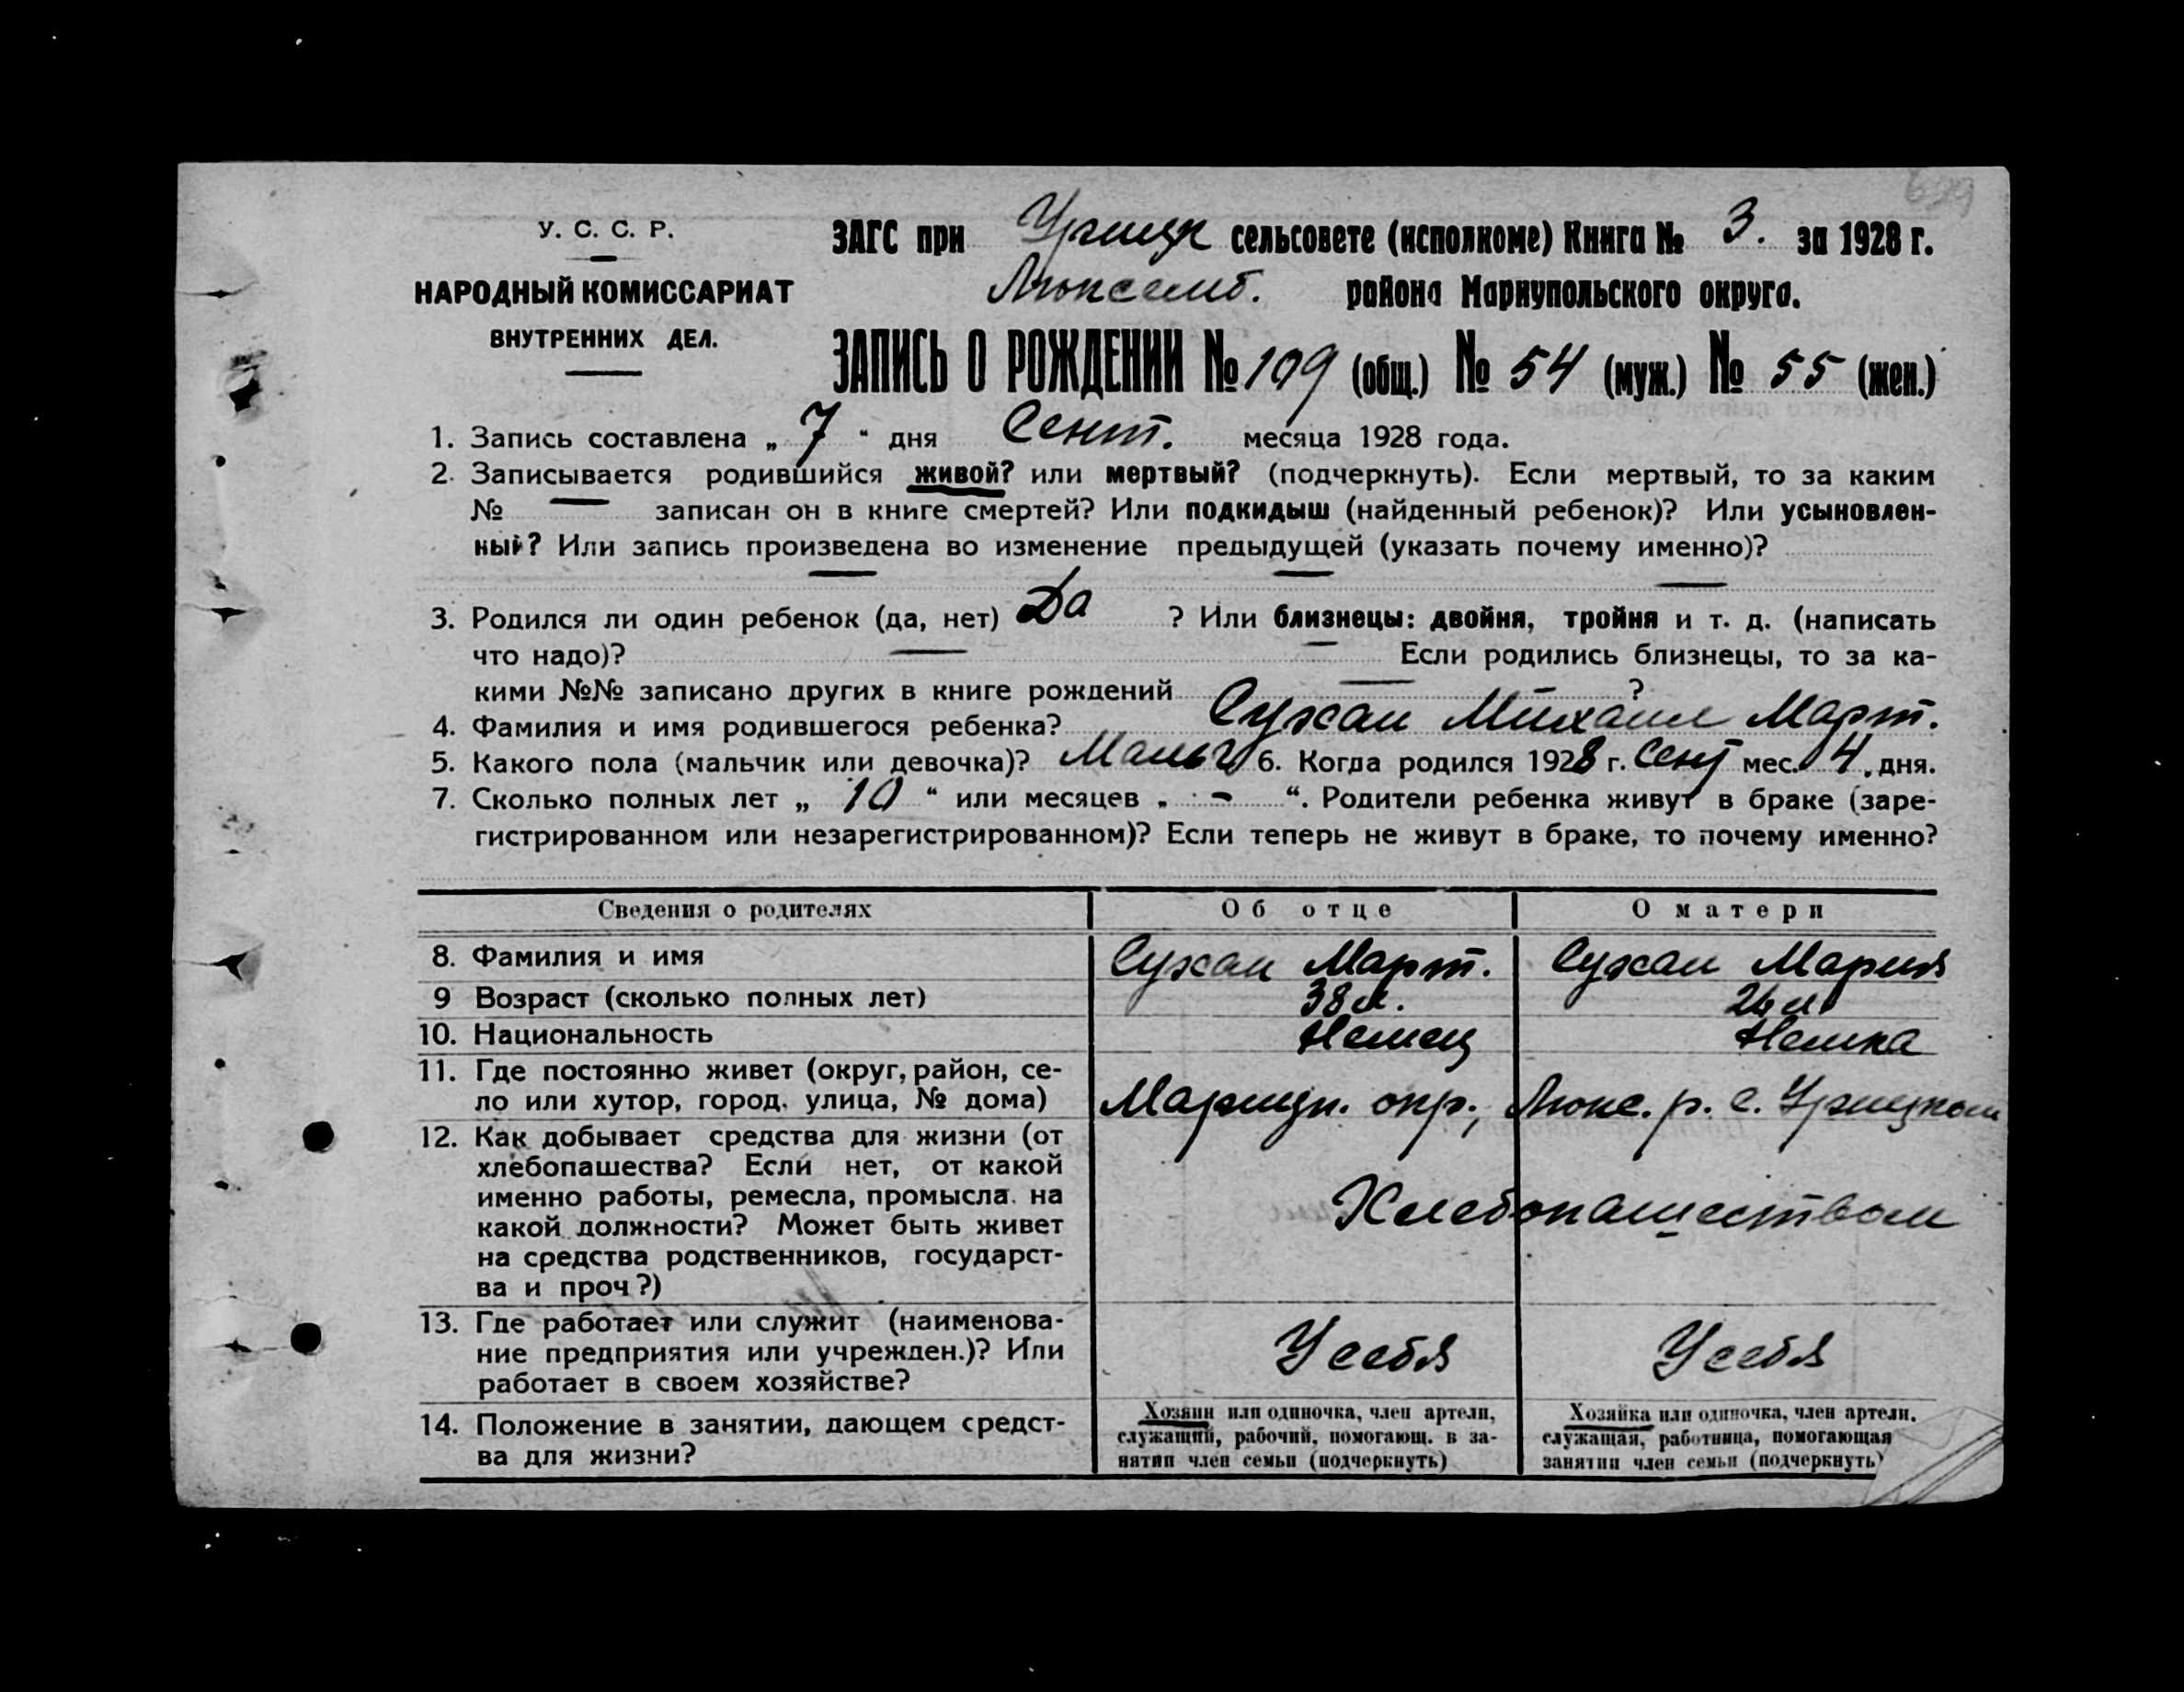 699
У. С. С. Р.
НАРОДНЫЙ КОМИССАРИАТ
ВНУТРЕННИХ ДЕЛ.
ЗАГС при Урицк сельсовете (исполкоме) Книга № 3. за 1928 г.
Люксемб. района Мариупольского округа.
ЗАПИСЬ О РОЖДЕНИИ № 109 (общ.) № 54 (муж.) № 55 (жен.)
1. Запись составлена „ 7 “ дня Сент. месяца 1928 года.
2. Записывается родившийся живой? или мертвый? (подчеркнуть). Если мертвый, то за каким
№ — записан он в книге смертей? Или подкидыш (найденный ребенок)? Или усыновлен-
ный? Или запись произведена во изменение предыдущей (указать почему именно)?
— — —
3. Родился ли один ребенок (да, нет) Да ? Или близнецы: двойня, тройня и т. д. (написать
что надо)? — — Если родились близнецы, то за ка-
кими №№ записано других в книге рождений — ?
4. Фамилия и имя родившегося ребенка? Михаил Март.
5. Какого пола (мальчик или девочка)? Мальч 6. Когда родился 1928 г. Сент мес. 4. дня.
7. Сколько полных лет „ 10 “ или месяцев „ - “. Родители ребенка живут в браке (заре-
гистрированном или незарегистрированном)? Если теперь не живут в браке, то почему именно?
Сведения о родителях Об отце О матери
8. Фамилия и имя Март. Мария
9 Возраст (сколько полных лет) 38 л. 26 л
10. Национальность Немец Немка
11. Где постоянно живет (округ, район, се-
ло или хутор, город, улица, № дома) Мариуп. окр., Люкс. р. с. Урицком
12. Как добывает средства для жизни (от
хлебопашества? Если нет, от какой
именно работы, ремесла, промысла, на
какой должности? Может быть живет
на средства родственников, государст-
ва и проч?)
Хлебопашеством
13. Где работает или служит (наименова-
ние предприятия или учрежден.)? Или
работает в своем хозяйстве?
У себя У себя
14. Положение в занятии, дающем средст-
ва для жизни?
Хозяин или одиночка, член артели,
служащий, рабочий, помогающ. в за-
нятии член семьи (подчеркнуть)
Хозяйка или одиночка, член артели,
служащая, работница, помогающая
занятии член семьи (подчеркнуть)